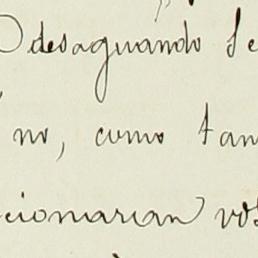 desaguando se
no, como tam
cionarian vos